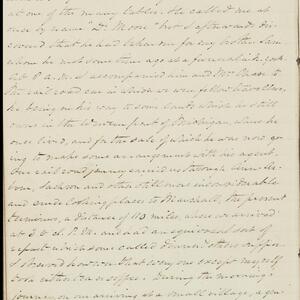 at one of the many tables. He called me at
once by name "Dr. Moore" but I afterwards dis-
covered that he had taken me for my brother Sam
whom he had not some time ago at a funeral
at 8 A.M. I accompanied him and Mrs.
to the rail road car in which we were fellow travellers,
he being on his way to some lands which he still
owns in the Western part of Michigan, where he
once lived, and for the sale of which he was now go-
ing to make some arrangement with his agent.
Our rail road journey carried us through
Jackson and other still more inconsiderable
and rude looking places to Marshall, the present
terminus, a distance of 110 miles, where we arrived
at P.M. and had an equivocal sort of
repast which some called dinner others supper
however that every one except myself
took either tea or coffee. During the morning
journey on our arriving at a small village, a gen